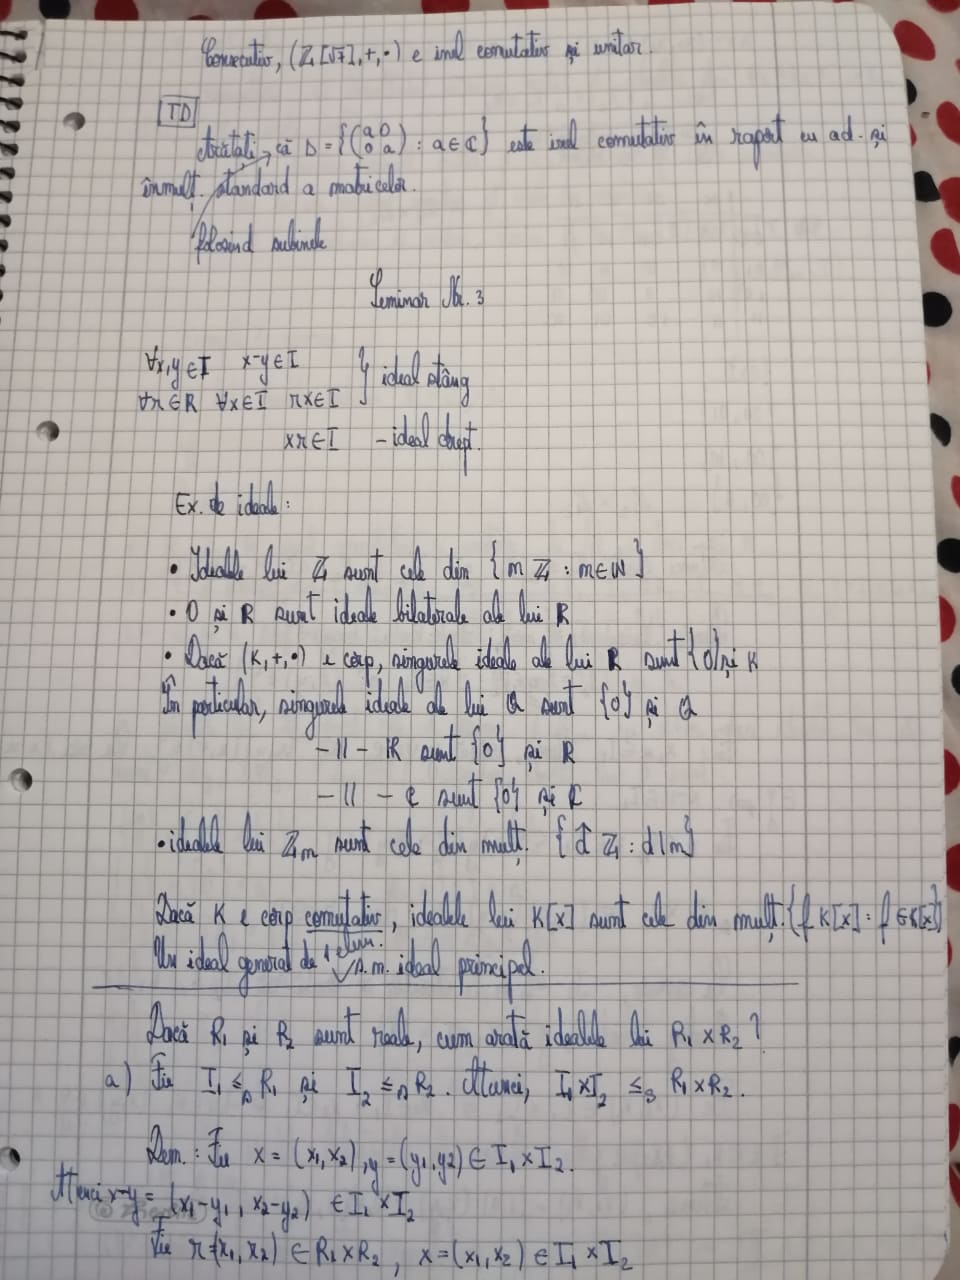 Consecutiv, (ℤ[√7],+,·) e inel comutativ și unitar.
TD
Arătați că D = {(a 0
0 a) : a∈ℂ} este inel comutativ în raport cu ad. și
înmulț. standard a matricelor.
folosind subinele
Seminar Nr. 3
∀x,y∈I x-y∈I } ideal stâng
∀r∈R ∀x∈I rx∈I
xr∈I - ideal drept.
Ex. de ideale:
• Idealele lui ℤ sunt cele din {mℤ : m∈ℕ}
• 0 și R sunt ideale bilaterale ale lui R
• Dacă (K,+,·) e corp, singurele ideale ale lui R sunt {0} și K
În particular, singurele ideale ale lui ℚ sunt {0} și ℚ
-||- ℝ sunt {0} și ℝ
-||- ℂ sunt {0} și ℂ
• idealele lui ℤm sunt cele din mulț. {d̂ ℤ : d|m}
Dacă K e corp comutativ, idealele lui K[x] sunt cele din mulț. {f K[x] : f∈K[x]}
Un ideal generat de 1 elem. s.m. ideal principal.
Dacă R₁ și R₂ sunt reale, cum arată idealele lui R₁ × R₂?
a) Fie I₁ ≤s R₁ și I₂ ≤s R₂. Atunci, I₁×I₂ ≤s R₁×R₂.
Dem.: Fie x = (x₁,x₂), y = (y₁,y2) ∈ I₁×I₂.
Atunci x-y = (x₁-y₁, x₂-y₂) ∈ I₁×I₂
Fie r=(x₁,x₂) ∈ R₁×R₂, x=(x₁,x₂) ∈ I₁×I₂